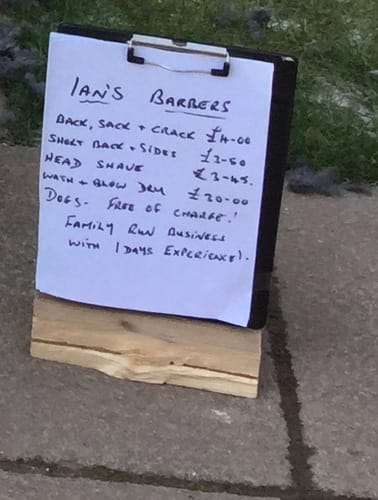 IAN'S BARBERS
BACK, SACK + CRACK £4-00
SHORT BACK + SIDES £3-50
HEAD SHAVE £3-45.
WASH + BLOW DRY £20-00
DOGS- FREE OF CHARGE!
FAMILY RUN BUSINESS
WITH 1 DAYS EXPERIENCE!.